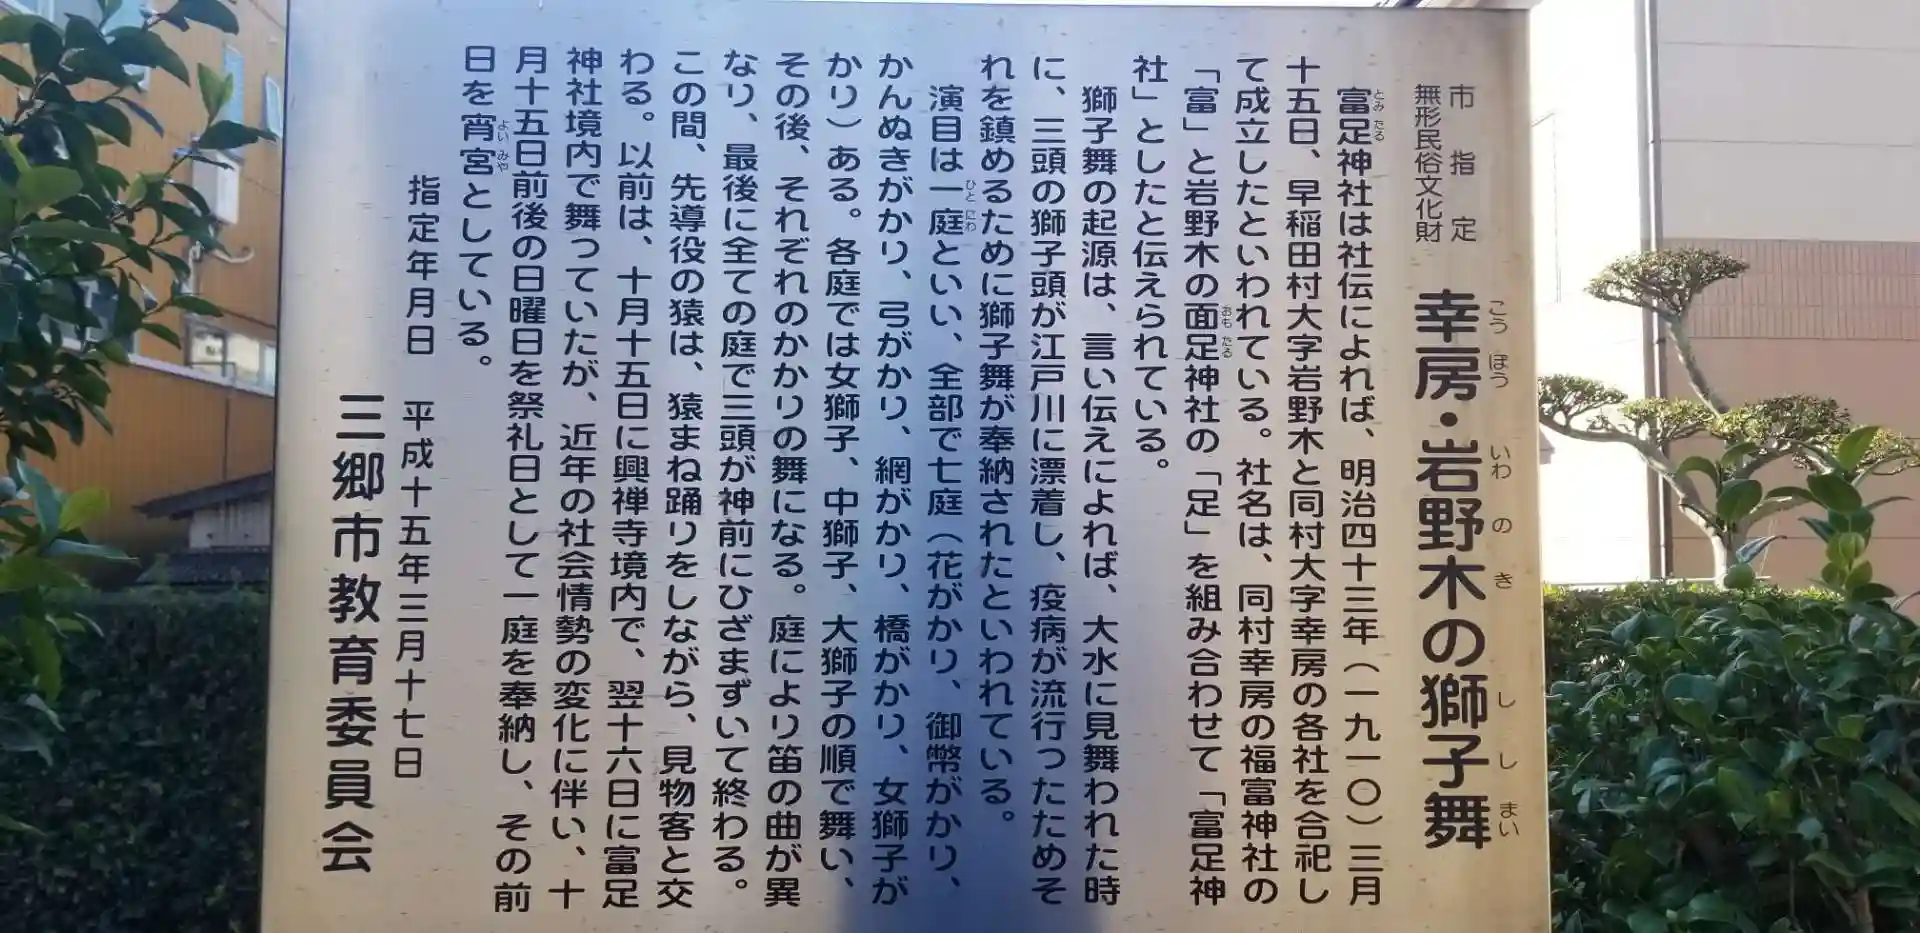 市指定
無形民俗文化財
幸房・岩野木の獅子舞
こうぼう いわのき ししまい
富足神社は社伝によれば、明治四十三年（一九一〇）三月
とみたる
十五日、早稲田村大字岩野木と同村大字幸房の各社を合祀し
て成立したといわれている。社名は、同村幸房の福富神社の
「富」と岩野木の面足神社の「足」を組み合わせて「富足神
おもたる
社」としたと伝えられている。
獅子舞の起源は、言い伝えによれば、大水に見舞われた時
に、三頭の獅子頭が江戸川に漂着し、疫病が流行ったためそ
れを鎮めるために獅子舞が奉納されたといわれている。
演目は一庭といい、全部で七庭（花がかり、御幣がかり、
ひとにわ
かんぬきがかり、弓がかり、網がかり、橋がかり、女獅子が
かり）ある。各庭では女獅子、中獅子、大獅子の順で舞い、
その後、それぞれのかかりの舞になる。庭により笛の曲が異
なり、最後に全ての庭で三頭が神前にひざまずいて終わる。
この間、先導役の猿は、猿まね踊りをしながら、見物客と交
わる。以前は、十月十五日に興禅寺境内で、翌十六日に富足
神社境内で舞っていたが、近年の社会情勢の変化に伴い、十
月十五日前後の日曜日を祭礼日として一庭を奉納し、その前
日を宵宮としている。
よいみや
指定年月日 平成十五年三月十七日
三郷市教育委員会